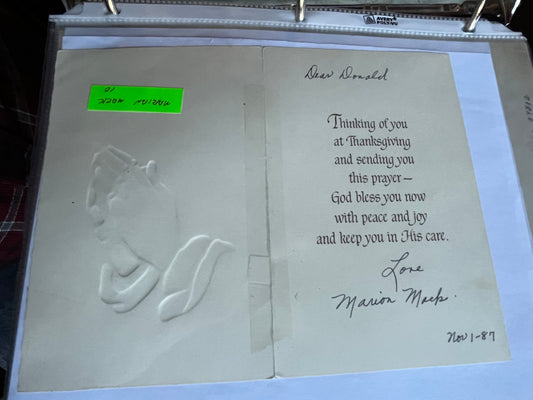 AVERY
MARION MACK
Dear Donald
Thinking of you
at Thanksgiving
and sending you
this prayer—
God bless you now
with peace and joy
and keep you in His care.
Love
Marion Mack.
Nov 1-87